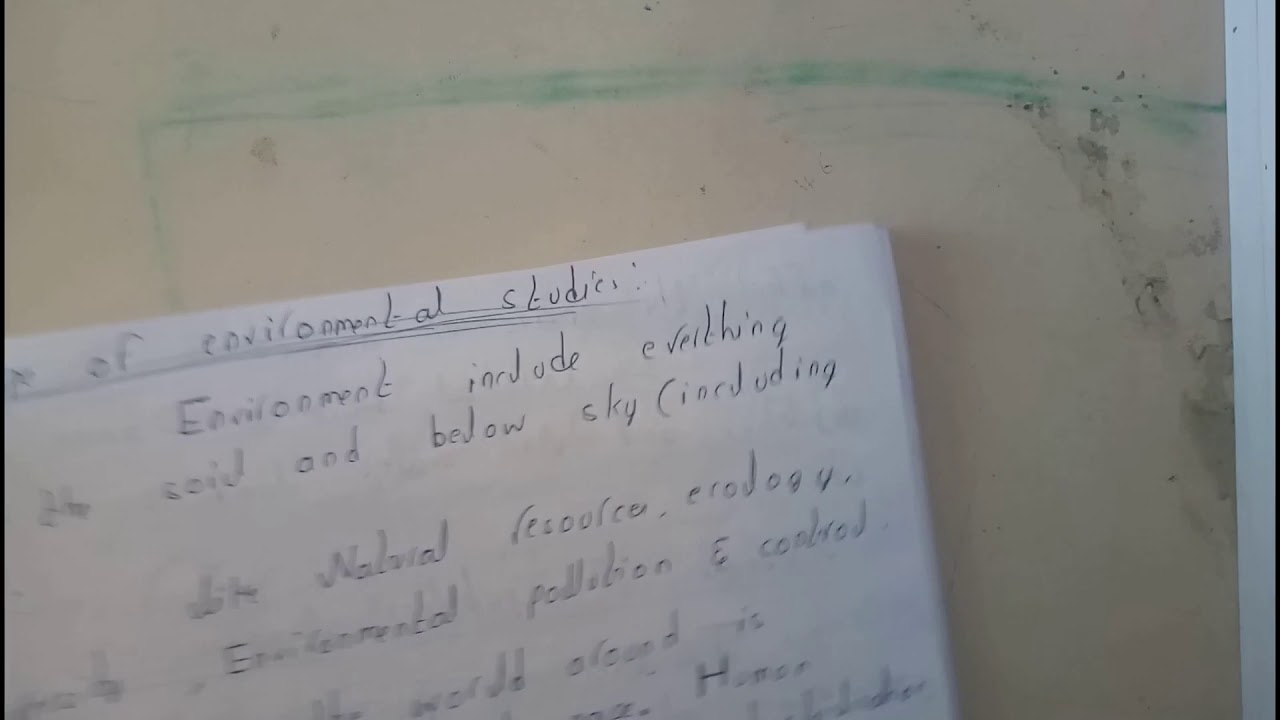 of environmental studies:
Environment include everthing
the soil and below sky (including
like Natural resource, ecology,
Environmental pollution & control.
the world around is
Human